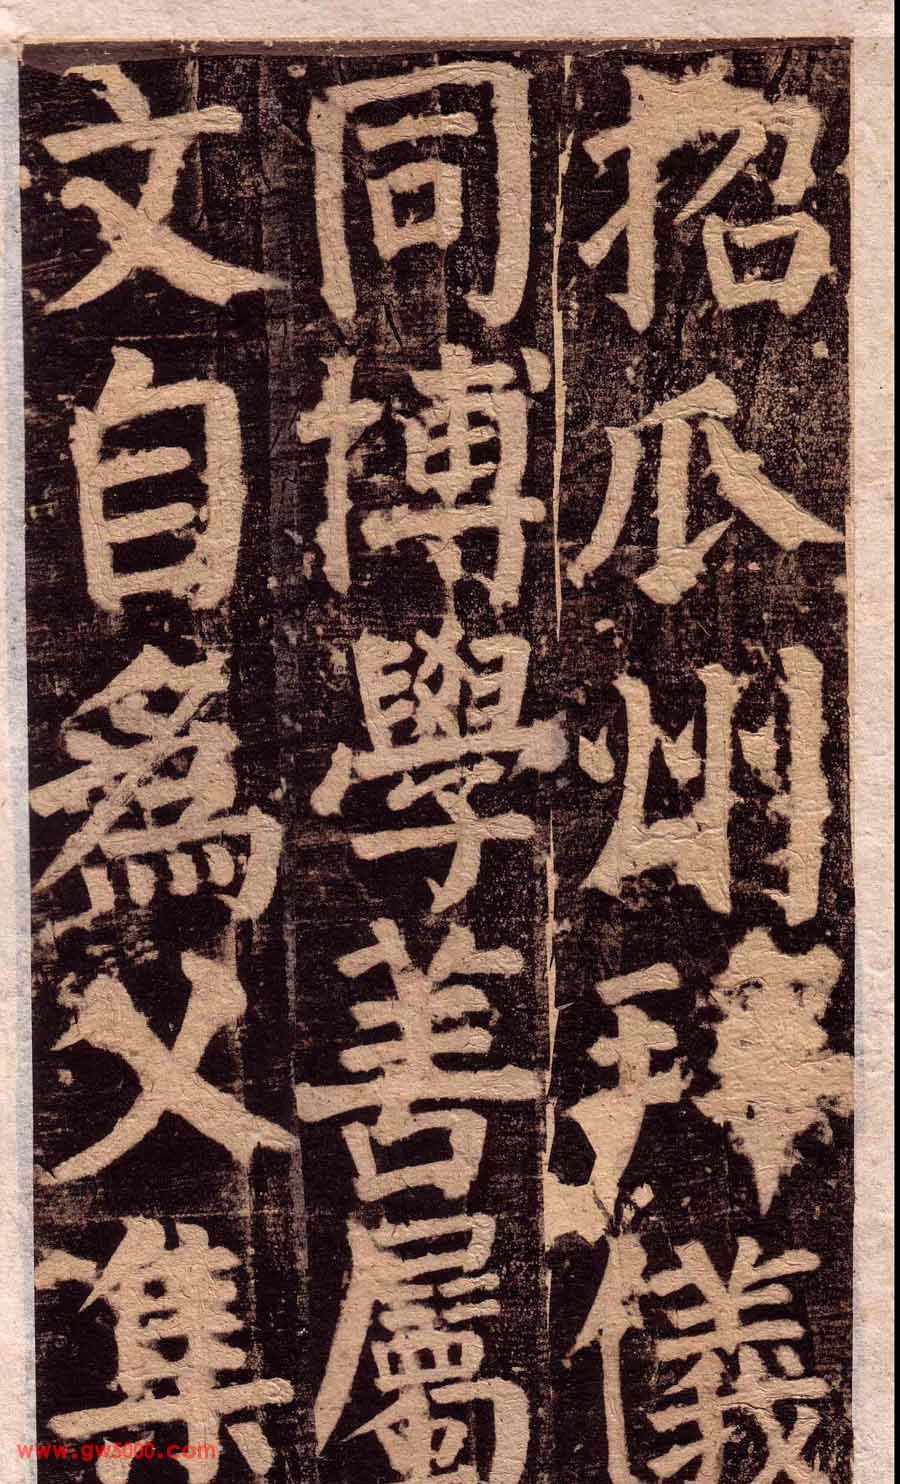 招瓜州拜儀
同博學善屬
文自爲父集
www.gw5000.com